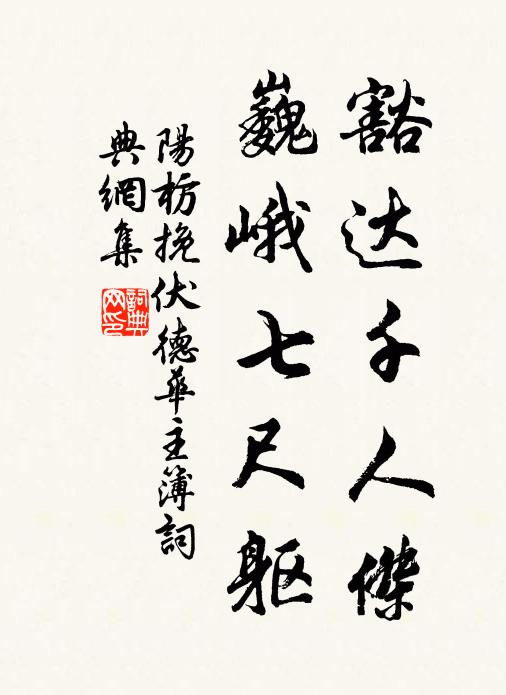 豁达千人傑
巍峨七尺躯
陽枋挽伏德華主簿詞
典網集
詞典
网印